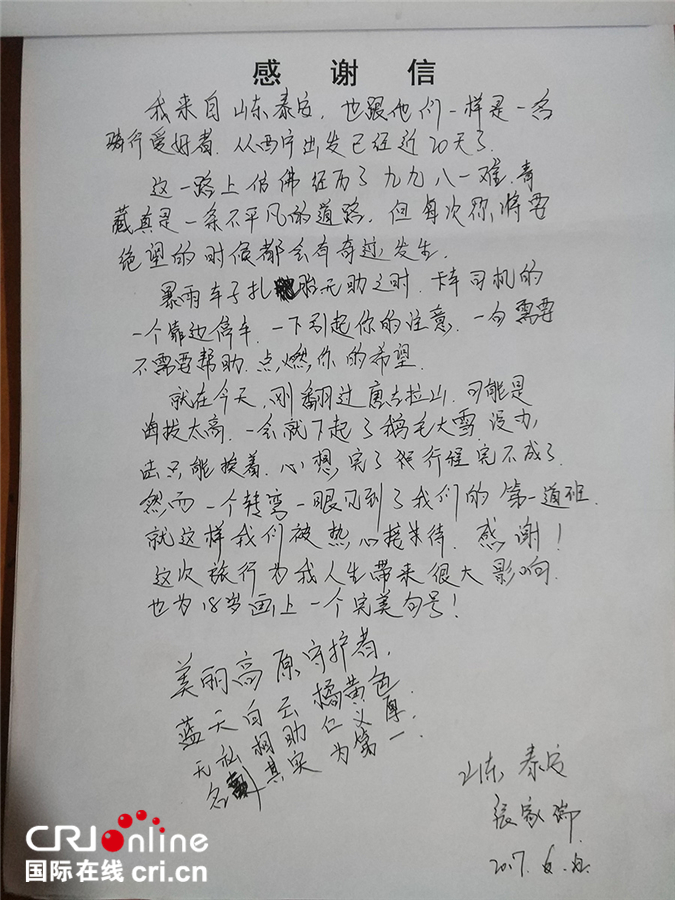 感 谢 信
我来自山东泰安，也跟他们一样是一名
骑行爱好者．从西宁出发已经近20天了．
这一路上仿佛经历了九九八一难．青
藏真是一条不平凡的道路．但每次你将要
绝望的时候都会有奇迹发生．
暴雨车子扎胎无助之时．卡车司机的
一个靠边停车．一下引起你的注意．一句需要
不需要帮助．点燃你的希望．
就在今天，刚翻过唐古拉山．可能是
海拔太高．一会就下起了鹅毛大雪 没力，
只能挨着．心想，完了 行程完不成了．
然而一个转弯一眼见到了我们的第一道班．
就这样我们被热心接待．感谢！
这次旅行为我人生带来很大影响．
也为18岁画上一个完美句号！
美丽高原守护者，
蓝天白云橘黄色
无私相助仁义厚．
名其实为第一．
山东 泰安
张家
2017.
CRIonline
国际在线 cri.cn